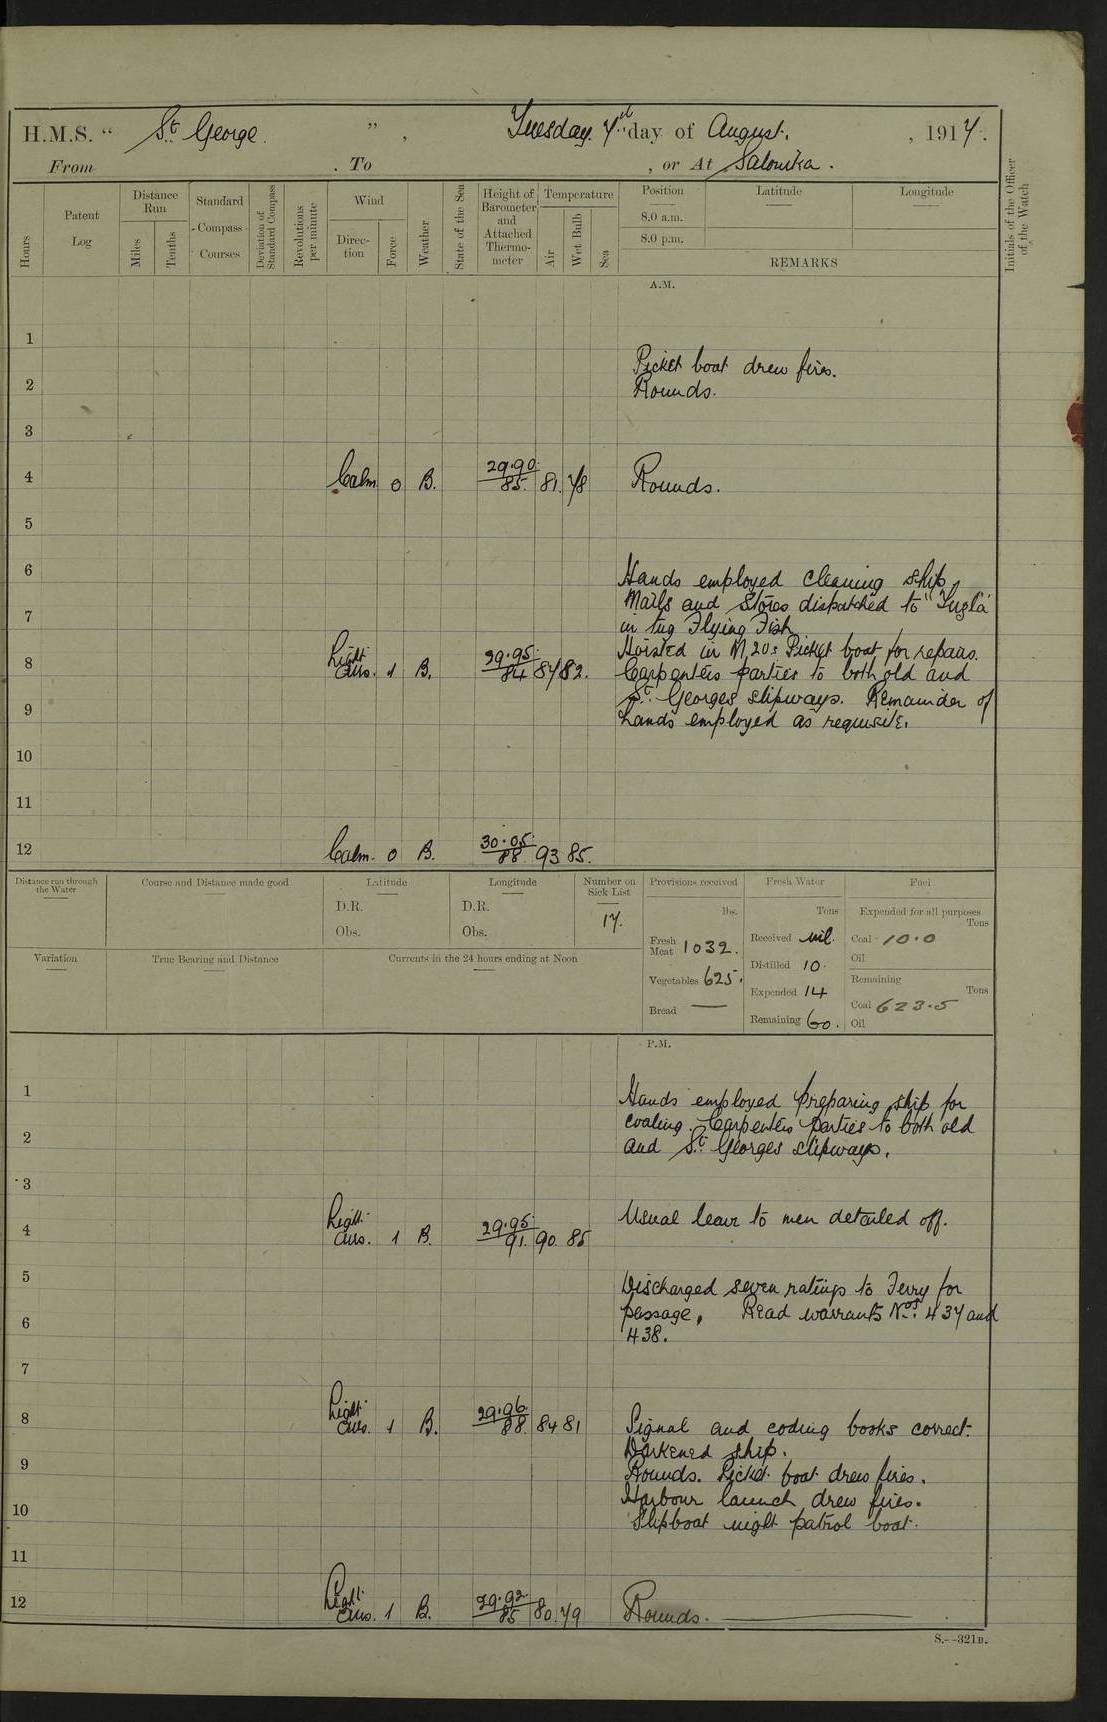 H.M.S. “ St. George. ” , Tuesday. 7th day of August. , 1917.
From . To , or At Salonika.
Hours
Patent Log
Distance Run
Miles
Tenths
Standard Compass Courses
Deviation of Standard Compass
Revolutions per minute
Wind
Direction
Force
Weather
State of the Sea
Height of Barometer and Attached Thermometer
Temperature
Air
Wet Bulb
Sea
Position
8.0 a.m.
8.0 p.m.
Latitude
Longitude
REMARKS
Initials of the Officer of the Watch
A.M.
1
Picket boat drew fires.
2 Rounds.
3
4 Calm. 0 B. 29.90. 85. 81. 78 Rounds.
5
6 Hands employed cleaning ship,
Mails and Stores dispatched to "Tuzla"
7 in tug Flying Fish
Hoisted in M.20s Picket boat for repairs.
8 Light airs. 1 B. 29.95. 84 84 82. Carpenters parties to both old and
St. Georges slipways. Remainder of
9 hands employed as requisite.
10
11
12 Calm. 0 B. 30.05. 88. 93 85.
Distance run through the Water
Course and Distance made good
Latitude
D.R.
Obs.
Longitude
D.R.
Obs.
Number on Sick List
17.
Provisions received
lbs.
Fresh Meat 1032.
Vegetables 625.
Bread —
Fresh Water
Tons
Received nil.
Distilled 10.
Expended 14
Remaining 60.
Fuel
Expended for all purposes
Tons
Coal 10.0
Oil
Remaining
Tons
Coal 623.5
Oil
Variation
True Bearing and Distance
Currents in the 24 hours ending at Noon
P.M.
1 Hands employed preparing ship for
coaling. Carpenters parties to both old
2 and St. Georges slipways.
3
4 Light airs. 1 B. 29.95. 91. 90. 85 Usual leave to men detailed off.
5 Discharged seven ratings to Ferry for
passage. Read warrants Nos. 437 and
6 438.
7
8 Light airs. 1 B. 29.96. 88. 84 81 Signal and coding books correct.
Darkened ship.
9 Rounds. Picket boat drew fires.
Harbour launch drew fires.
10 Slipboat night patrol boat.
11
12 Light airs. 1 B. 29.92. 85 80. 79 Rounds.
S.—321B.